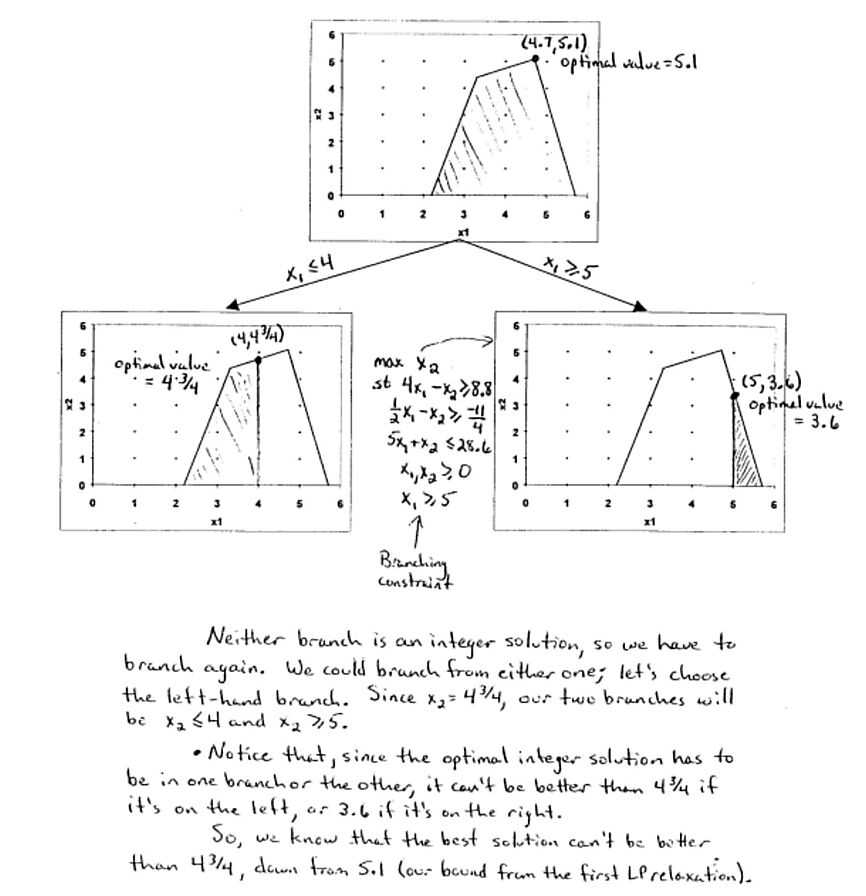 6
5
4
3
2
1
0
x2
(4.7,5.1)
optimal value=5.1
0 1 2 3 4 5 6
x1
x₁ ≤4
x₁ ≥5
6
5
4
3
2
1
0
x2
(4,4¾)
optimal value
= 4¾
0 1 2 3 4 5 6
x1
max x₂
st 4x₁-x₂≥8.8
½x₁-x₂≥-11/4
5x₁+x₂≤28.6
x₁,x₂≥0
x₁≥5
Branching
constraint
6
5
4
3
2
1
0
x2
(5,3.6)
optimal value
= 3.6
0 1 2 3 4 5 6
x1
Neither branch is an integer solution, so we have to
branch again. We could branch from either one; let's choose
the left-hand branch. Since x₂=4¾, our two branches will
be x₂≤4 and x₂≥5.
• Notice that, since the optimal integer solution has to
be in one branch or the other, it can't be better than 4¾ if
it's on the left, or 3.6 if it's on the right.
So, we know that the best solution can't be better
than 4¾, down from 5.1 (our bound from the first LP relaxation).